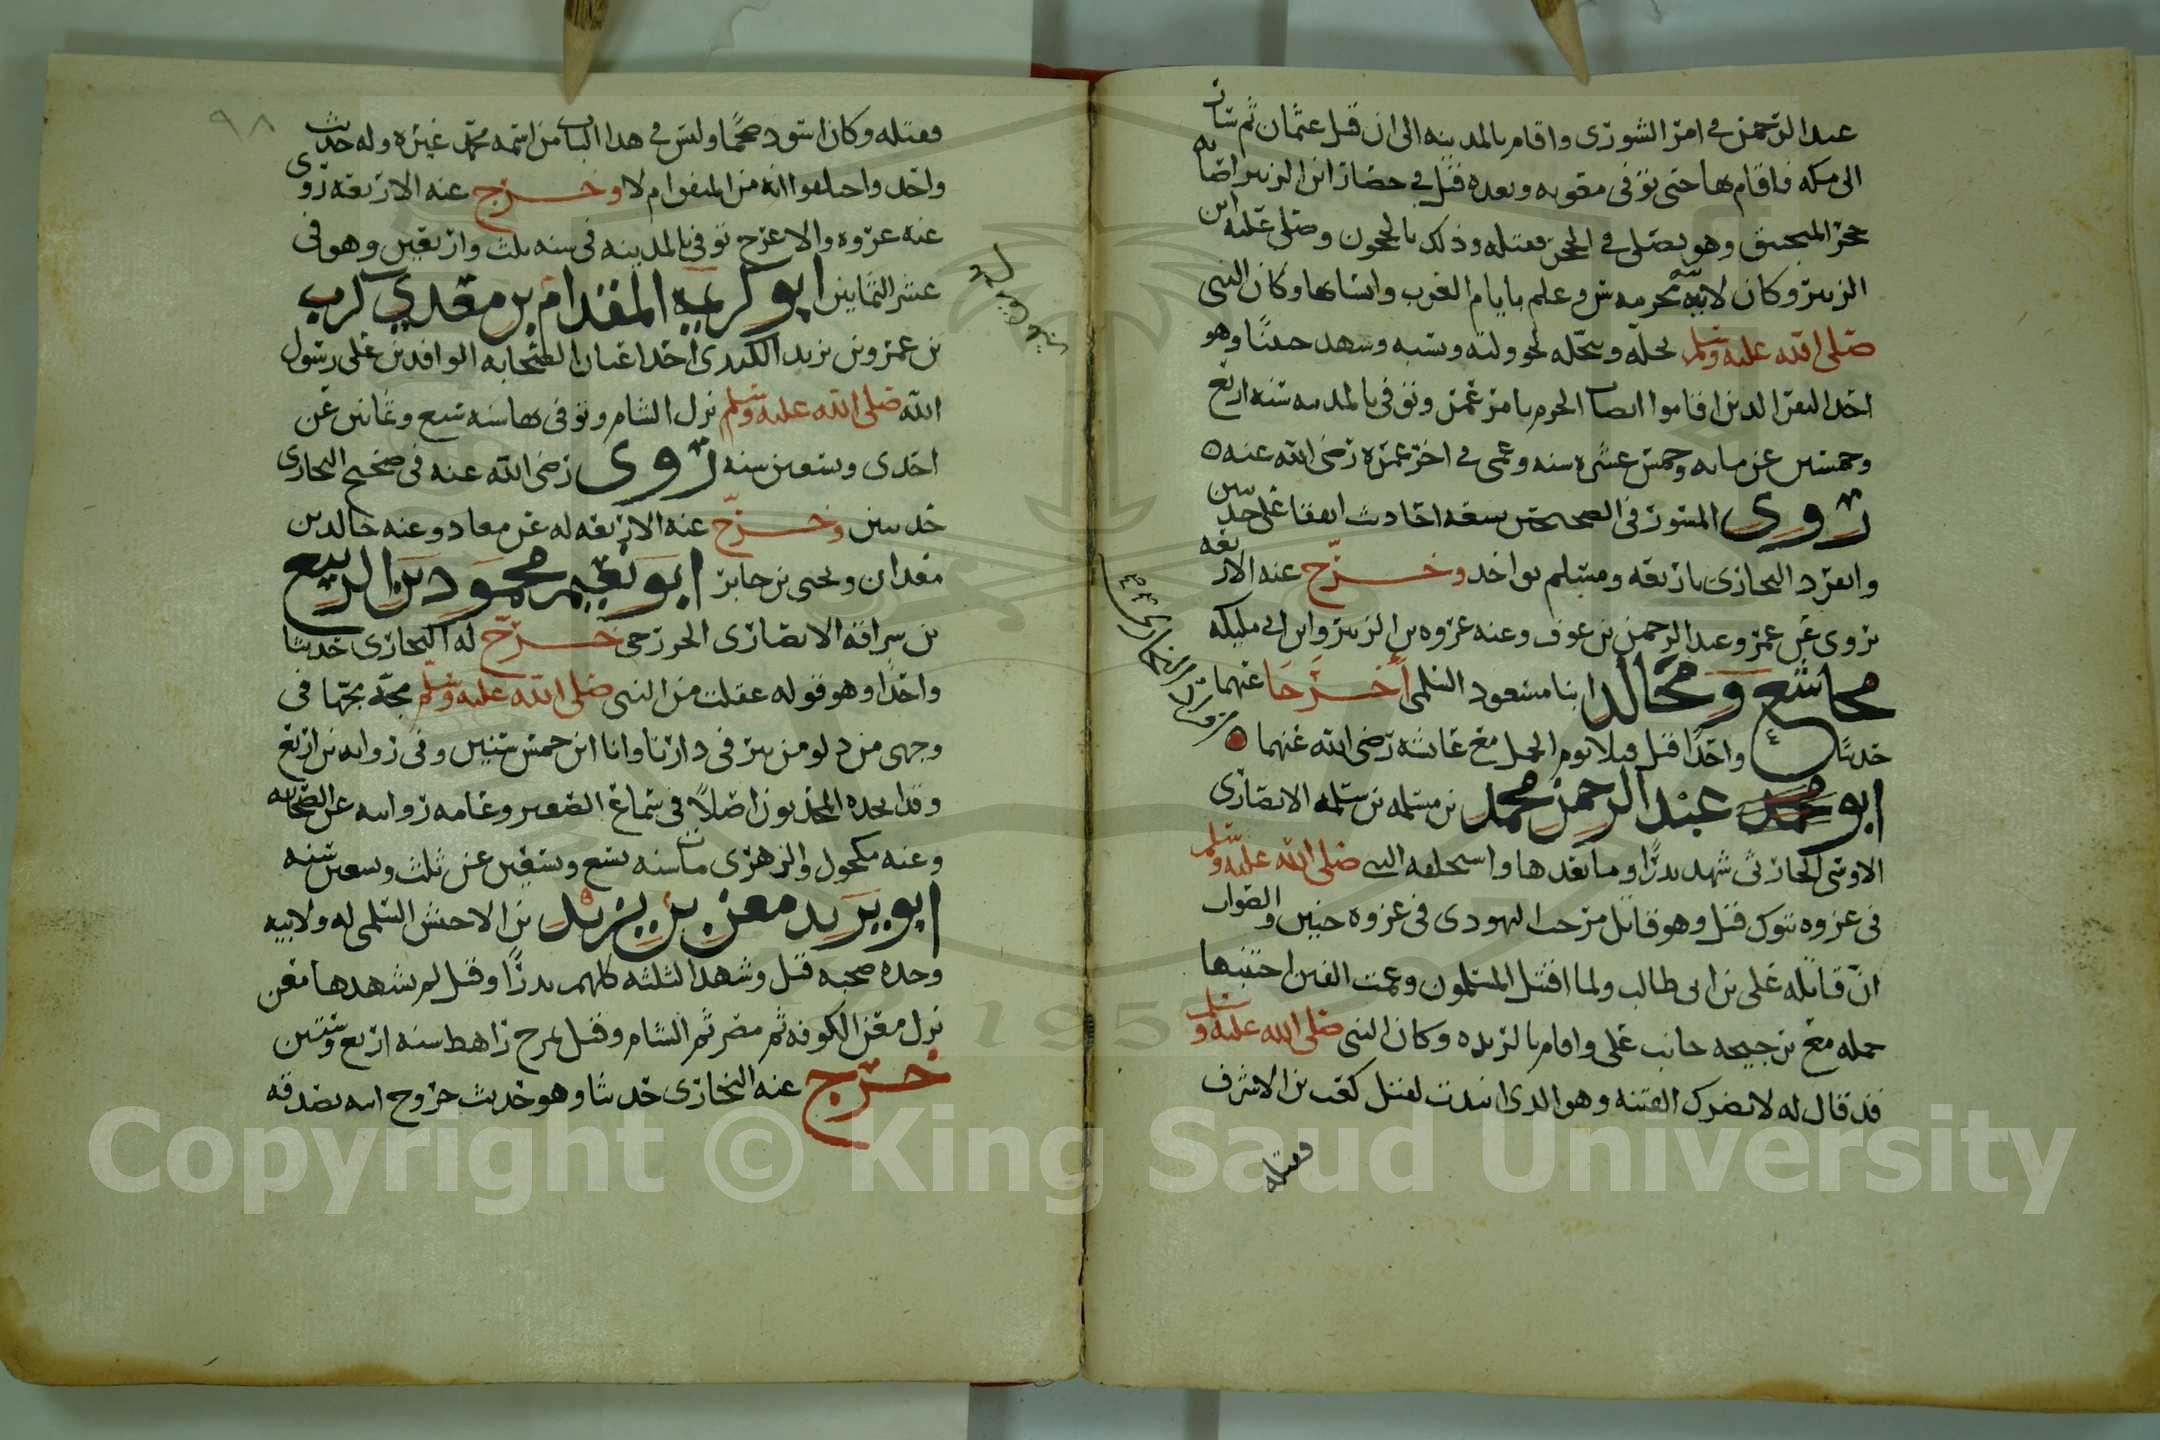 عبد الرحمن في امر الشورى واقام بالمدينه الى ان قتل عثمان ثم سار
الى مكه فاقام بها حتى توفى معويه وبعده قتل في حصار ابن الزبير اصابه
حجر المنجنيق وهو يصلى في الحجر فقتله وذلك بالحجون وصلى عليه ابن
الزبير وكان لابيه مخرمه سن وعلم بايام العرب وانسابها وكان النبى
صلى الله عليه وسلم يحله ويبجله وشهد حنينا وهو
احد النفر الذين اقاموا انصاب الحرم بامر عمر وتوفى بالمدينه سنه اربع
وخمسين عن مايه وخمس عشره سنه وعمى في اخر عمره رضى الله عنه ه
روى المسور فى الصحيحين سبعه احاديث اتفقا على حديثين
وانفرد البخارى باربعه ومسلم بواحد وخرج عنه الاربعه
يروى عن عمر وعبد الرحمن بن عوف وعنه عروه بن الزبير وابن ابى مليكه
مجاشع ومجالد ابنا مسعود السلمى أخرجا عنهما
حديثا واحدا قتل قبلا يوم الجمل مع عائشه رضى الله عنهما
ابو محمد عبد الرحمن محمد بن مسلمه بن سلمه الانصارى
الاوسى الحارثى شهد بدرا وما بعدها واستخلفه النبى صلى الله عليه وسلم
فى غزوه تبوك قتل وهو قاتل مرحب اليهودى فى غزوه حنين والصواب
ان قاتله على بن ابى طالب ولما اقتتل المسلمون وعمت الفتن اجتنبها
جمله مع ترجيحه جانب على واقام بالربذه وكان النبى صلى الله عليه وسلم
قد قال له لا تضرك الفتنه وهو الذى انتدب لقتل كعب بن الاشرف
فقتله
٩٨
فقتله وكان اسود ضخما وليس في هذا الباب من اسمه محمد غيره وله حديث
واحد واختلفوا انه من المتفق ام لا وخرج عنه الاربعه روى
عنه عروه والاعرج توفى بالمدينه فى سنه ثلث واربعين وهو فى
عشر الثمانين ابو كريمه المقدام بن معدي كرب
بن عمرو بن يزيد الكندى احد اعيان الصحابه الوافدين على رسول
الله صلى الله عليه وسلم نزل الشام وتوفى بها سنه سبع وثمانين عن
احدى وتسعين سنه روى رضى الله عنه فى صحيح البخارى
حديثين وخرج عنه الاربعه له عن معاذ وعنه خالد بن
معدان ويحيى بن جابر ابو نعيم محمود بن الربيع
بن سراقه الانصارى الخزرجى خرج له البخارى حديثا
واحدا وهو قوله عقلت من النبى صلى الله عليه وسلم مجه مجها فى
وجهى من دلو من بير فى دارنا وانا ابن خمس سنين وفى روايه بن اربع
وقد اتخذه المحدثون اصلا فى سماع الصغير وعامه روايته عن الصحابه
وعنه مكحول والزهرى مات سنه تسع وتسعين عن ثلث وتسعين سنه
ابو يزيد معن بن يزيد بن الاخنس السلمى له ولابيه
وجده صحبه قيل وشهد الثلثه كلهم بدرا وقيل لم يشهدها معن
نزل معن الكوفه ثم مصر ثم الشام وقتل بمرج راهط سنه اربع وستين
خرج عنه البخارى حديثا وهو حديث خروج ابيه بصدقه
Copyright © King Saud University
1957